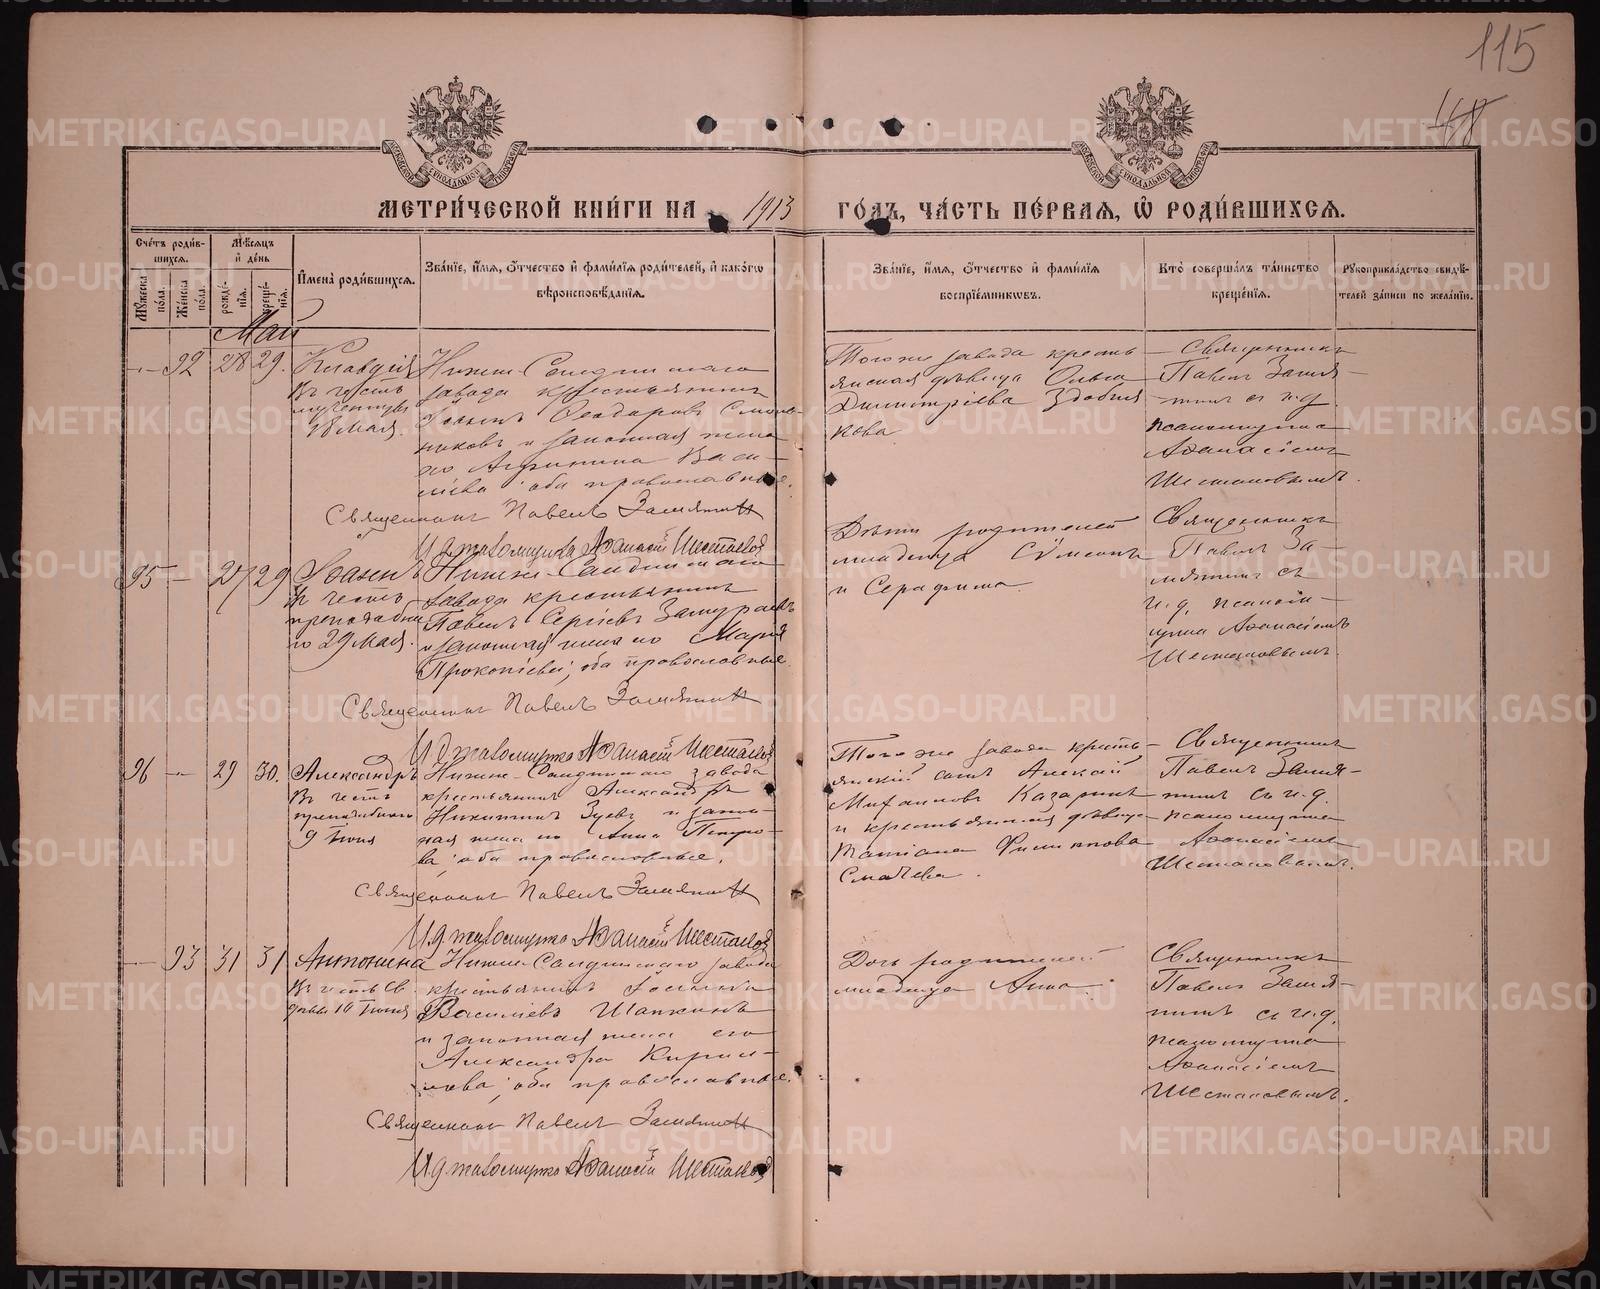 115
48
МЕТРИ́ЧЕСКОЙ КНИ́ГИ НА 1913 ГО́ДЪ, ЧА́СТЬ ПЕ́РВАЯ, Ѡ РОДИ́ВШИХСЯ.
Сче́тъ роди́в-
шихся.
Мѣ́сяцъ
и҆ де́нь
Мꙋ́жеска по́ла.
Же́нска по́ла.
рожде́-
нїя.
креще́-
нїя.
И҆мена̀ роди́вшихся.
Зва́нїе, и҆́мя, ѻ҆́тчество и҆ фами́лїя роди́телей, и҆ како́гѡ
вѣроисповѣ́данїя.
Зва́нїе, и҆́мя, ѻ҆́тчество и҆ фами́лїя
воспрїе́мникѡвъ.
Кто̀ соверша́лъ та́инство
креще́нїя.
Рꙋкоприкла́дство свидѣ́-
телей за́писи по жела́нїю.
Май
92 28 29.
Клавдія
въ честь
мученицы
18 Мая.
Нижне-Салдинскаго
завода крестьянинъ
Ѳеодоровъ
никовъ и законная жена
его Агрипина Васи-
ліева оба православные.
Священникъ Павелъ Замятин
И.д. псаломщика Аѳанасій Шесталов
Того же завода кресть
янская дѣвица Ольга
Димитріева
кова
Священникъ
Павелъ Замя-
тинъ съ и.д.
псаломщика
Аѳанасіемъ
Шесталовымъ.
95 — 27 29
Іоаннъ
въ честь
преподобна
го 29 Мая.
Нижне-Салдинскаго
завода крестьянинъ
Павелъ Сергіевъ Замураевъ
и законная жена его Марія
Прокопіева, оба православные
Священникъ Павелъ Замятин
И.д. псаломщика Аѳанасій Шесталов
Дѣти родителей
младенца Сѵмеонъ
и Серафима.
Священникъ
Павелъ За-
мятинъ съ
и.д. псалом-
щика Аѳанасіемъ
Шесталовымъ.
96 — 29 30.
Александръ
въ честь
преподобнаго
9 Іюня
Нижне-Салдинскаго завода
крестьянинъ Александръ
Никитинъ Зуевъ и закон-
ная жена его Анна Петро-
ва, оба православные.
Священникъ Павелъ Замятин
И.д. псаломщика Аѳанасій Шесталов
Того же завода кресть-
янскій сынъ Алексій
Михаиловъ Казаринъ
и крестьянская дѣвица
Татіана Филиппова
Священникъ
Павелъ Замя-
тинъ съ и.д.
псаломщика
Аѳанасіемъ
Шесталовымъ.
— 93 31 31
Антонина
въ честь св.
дѣвы 10 Іюня
Нижне-Салдинскаго завода
крестьянинъ
Василіевъ Шапкинъ
и законная жена его
Александра Кирил-
лова, оба православные.
Священникъ Павелъ Замятин
И.д. псаломщика Аѳанасій Шесталов
Дочь родителей
младенца Анна.
Священникъ
Павелъ Замя-
тинъ съ и.д.
псаломщика
Аѳанасіемъ
Шесталовымъ.
METRIKI.GASO-URAL.RU